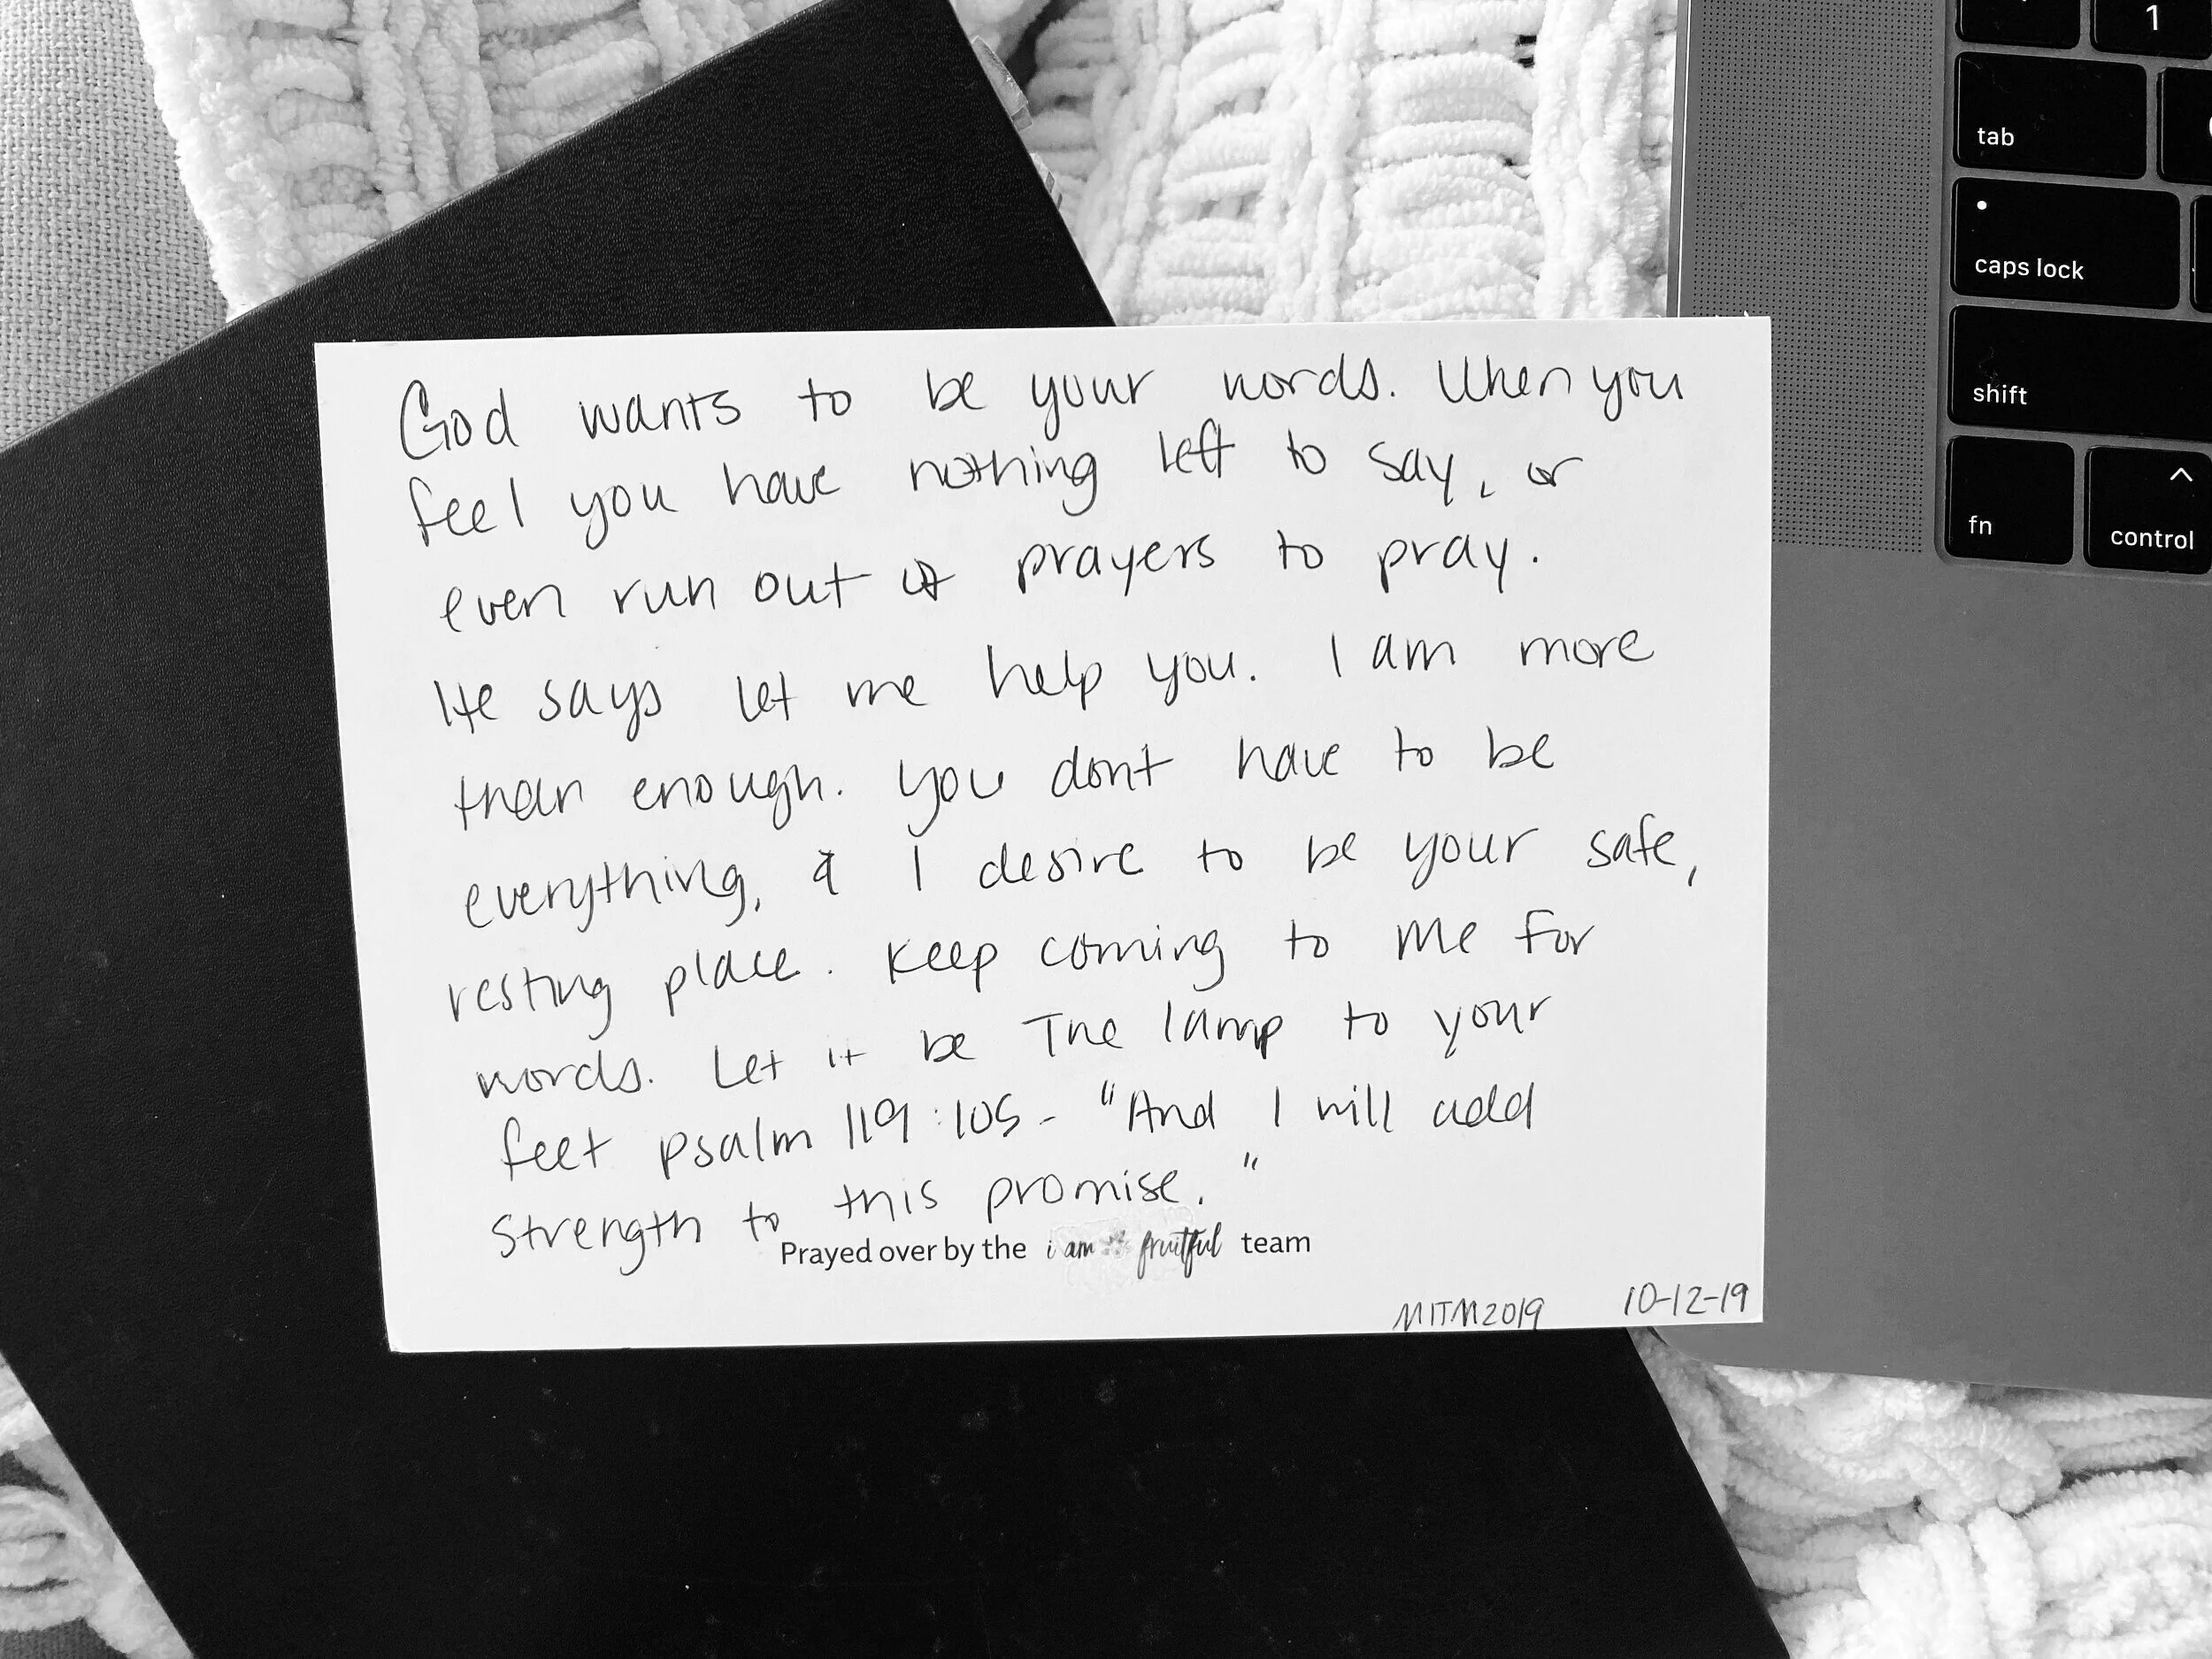 God wants to be your words. When you
feel you have nothing left to say, or
even run out of prayers to pray.
He says let me help you. I am more
than enough. you dont have to be
everything, & I desire to be your safe,
resting place. Keep coming to me for
words. Let it be The lamp to your
feet psalm 119:105 - "And I will add
strength to this promise."
Prayed over by the i am fruitful team
MITM2019 10-12-19
1
tab
caps lock
shift
fn
^
control